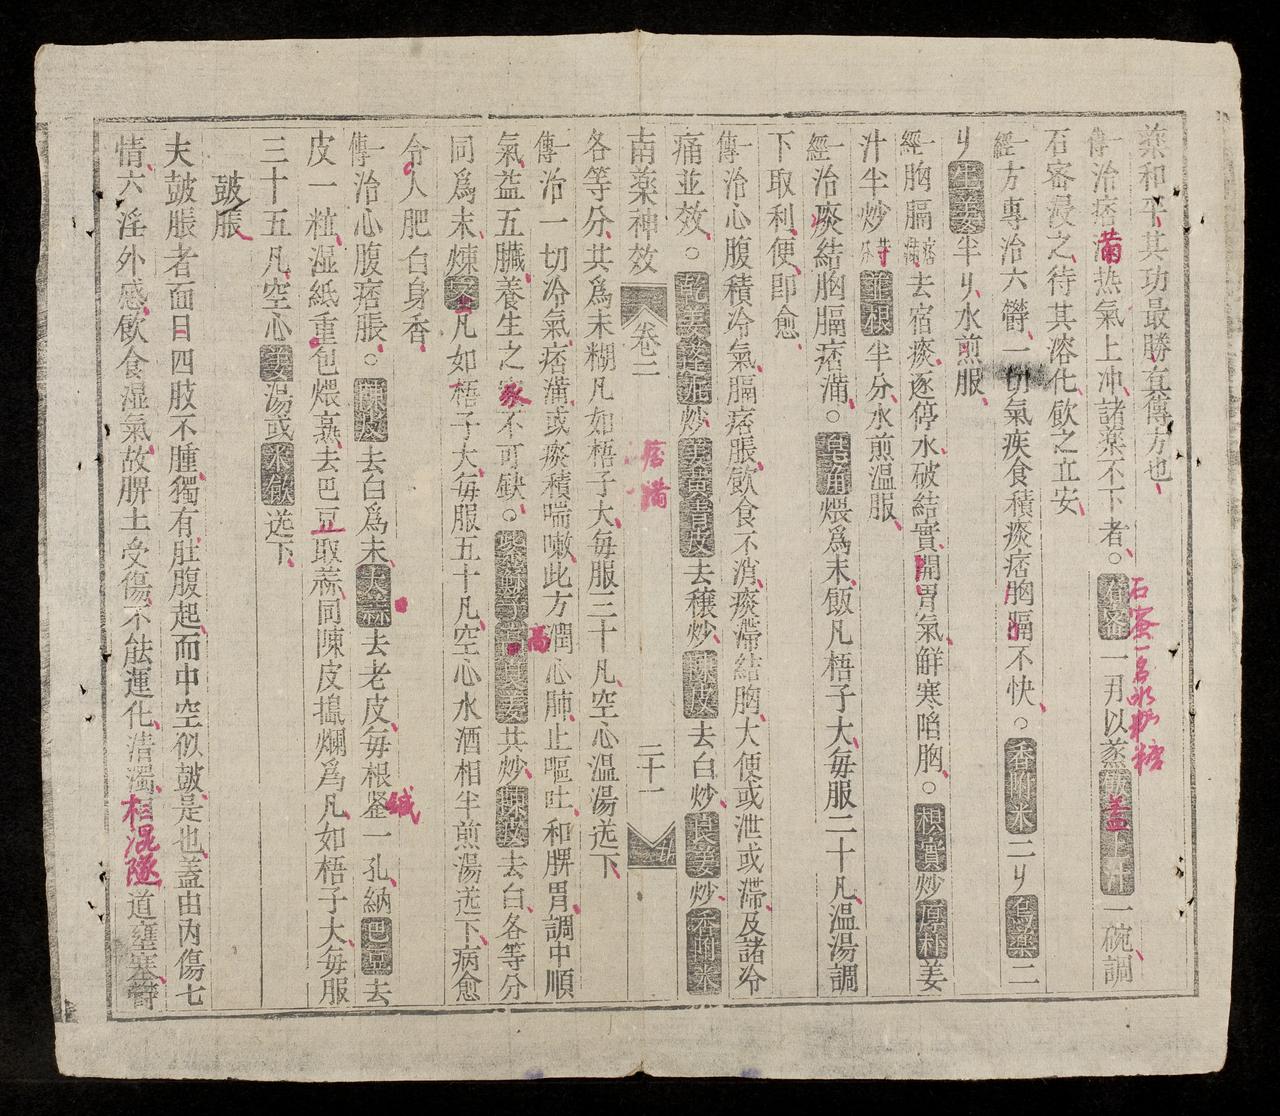 藥和平其功最勝真傳方也
一傳治痞滿热氣上冲諸藥不下者○石蜜一丹以蒸蓋土汁一碗調
石蜜一名氷粆糖
石密浸之待其溶化飲之立安
一經方專治六欝一切氣疾食積痰痞胸膈不快○香附米二刂烏藥二
刂生姜半刂水煎服
一經胸膈痞滿去宿痰逐停水破結實開胃氣鮮寒陷胸○枳實炒厚朴姜
汁半炒 半分水煎温服
一經治痰結胸膈痞滿○皂角煨爲末飯凡梧子大每服二十凡温湯調
下取利便即愈
一傳治心腹積冷氣膈痞脹飲食不消痰滯結胸大便或泄或滯及諸冷
痛並效○乾姜 炒姜黄青皮去穰炒陳皮去白炒良姜炒香附米
南藥神效 卷三 痞滿 二十一
各等分共爲末糊凡如梧子大每服三十凡空心温湯送下
一傳治一切冷氣痞滿或痰積喘嗽此方潤心肺止嘔吐和脾胃調中順
氣益五臟養生之家不可缺○紫蘇子高良姜共炒陳皮去白各等分
同爲末煉蜜凡如梧子大每服五十凡空心水酒相半煎湯送下病愈
令人肥白身香
一傳治心腹痞脹○陳皮去白爲末大蒜去老皮每根鑿一孔納巴豆去
皮一粒湿紙重包煨熟去巴豆取蒜同陳皮搗爛爲凡如梧子大每服
三十五凡空心姜湯或米飲送下
皷脹
夫皷脹者面目四肢不腫獨有肚腹起而中空似皷是也蓋由内傷七
情六淫外感飲食湿氣故脾土受傷不能運化清濁相混隧道壅塞欝